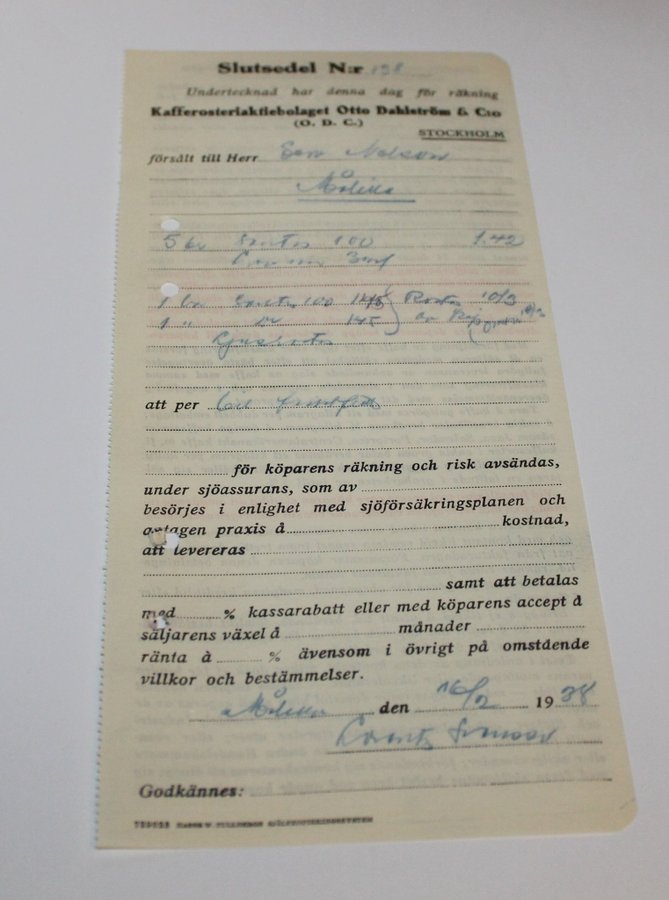 Slutsedel N:r 198
Undertecknad har denna dag för räkning
Kafferosteriaktiebolaget Otto Dahlström & C:o
(O. D. C.)
STOCKHOLM
försålt till Herr Nelson
Målilla
5 Santos 100 1.42
1 Santos 100
1 " 145
att per
för köparens räkning och risk avsändas,
under sjöassurans, som av
besörjes i enlighet med sjöförsäkringsplanen och
antagen praxis å kostnad,
att levereras
samt att betalas
med % kassarabatt eller med köparens accept å
säljarens växel å månader
ränta à % ävensom i övrigt på omstående
villkor och bestämmelser.
Målilla den 16/2 1938
Svensson
Godkännes: